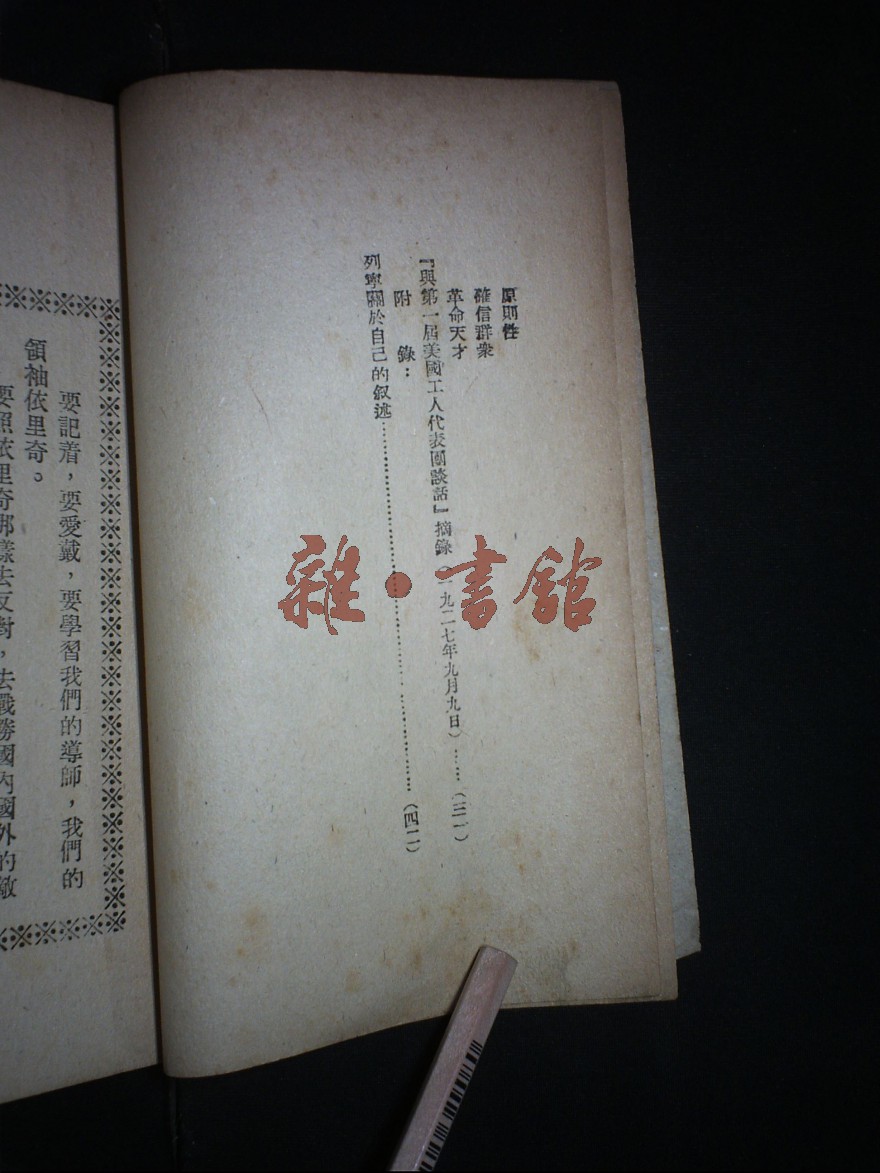 原則性
確信群衆
革命天才
『與第一屆美國工人代表團談話』摘錄（一九二七年九月九日）……（三一）
附　錄：
列寧關於自己的叙述……………………………………（四二）
要記着，要愛戴，要學習我們的導師，我們的
領袖依里奇。
要照依里奇那樣去反對，去戰勝國內國外的敵
雜·書館